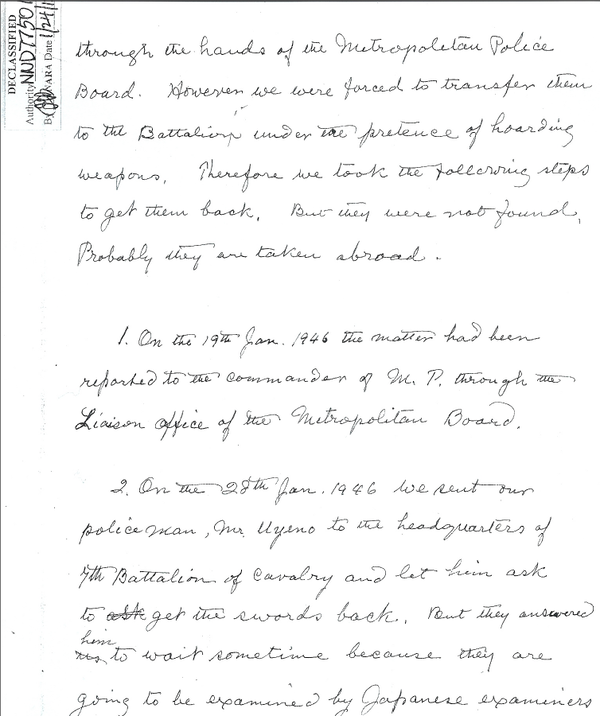 DECLASSIFIED
Authority NND 775011
By NARA Date 1/24/1
through the hands of the Metropolitan Police
Board. However we were forced to transfer them
to the Battalion under the pretence of hoarding
weapons. Therefore we took the following steps
to get them back. But they were not found.
Probably they are taken abroad.
1. On the 19th Jan. 1946 the matter had been
reported to the commander of M. P. through the
Liaison office of the Metropolitan Board.
2. On the 28th Jan. 1946 we sent our
police man, Mr. Uyeno to the headquarters of
7th Battalion of Cavalry and let him ask
to ask get the swords back. But they answered
him to wait sometime because they are
going to be examined by Japanese examiners